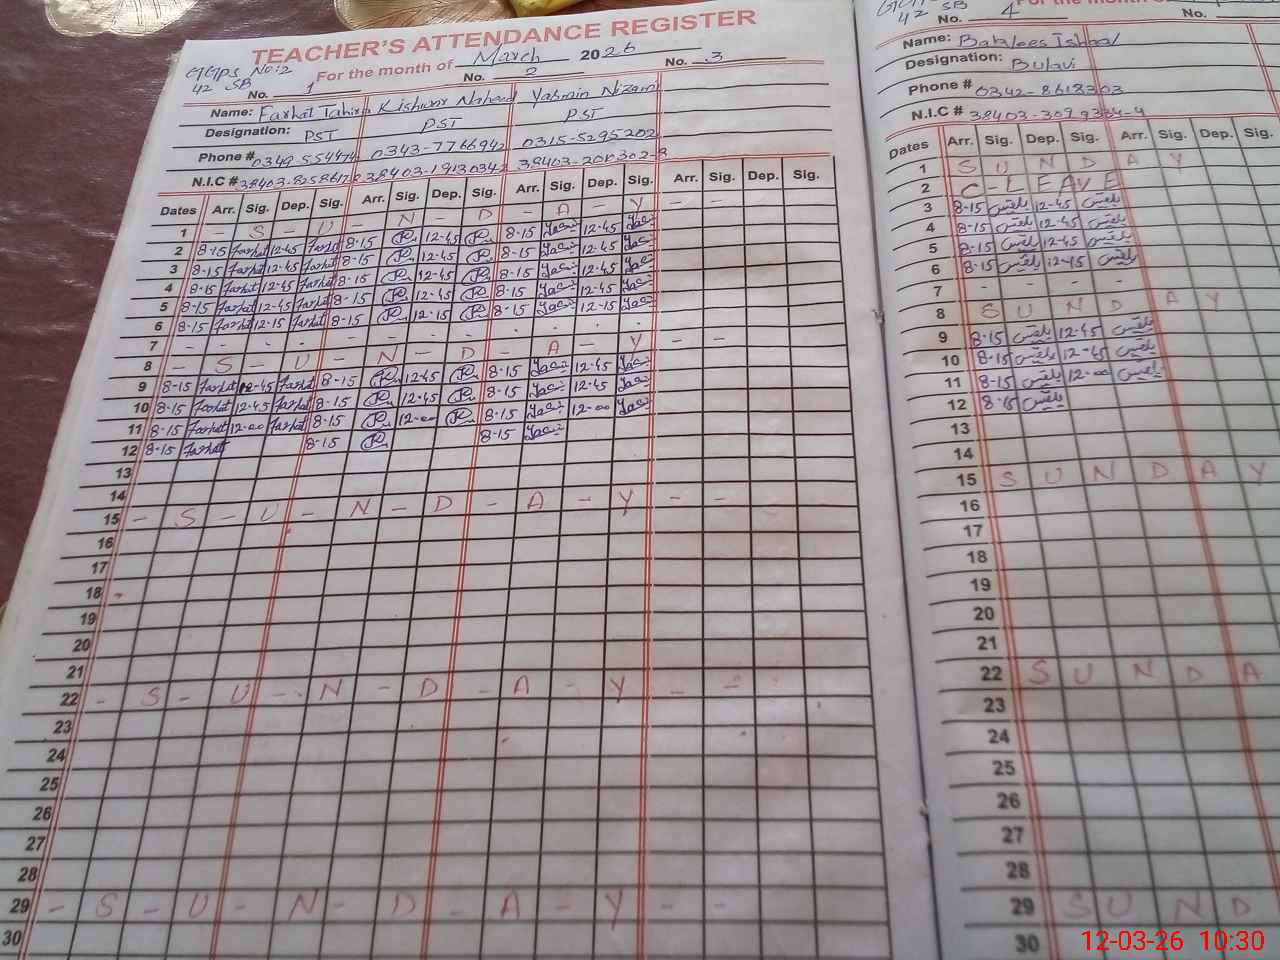 TEACHER'S ATTENDANCE REGISTER
GGPS No:2
42 SB
For the month of March 2026
No. 1 No. 2 No. 3
Name: Farhat Tahira Kishwar Naheed Yasmin Nizami
Designation: PST PST PST
Phone # 0343-7766942 0315-5295202
N.I.C #
Dates Arr. Sig. Dep. Sig. Arr. Sig. Dep. Sig. Arr. Sig. Dep. Sig. Arr. Sig. Dep. Sig.
1 - S - U - N - D - A - Y - -
2 8-15 Farhat 12-45 Farhat 8-15 12-45 8-15 12-45
3 8-15 Farhat 12-45 Farhat 8-15 12-45 8-15 12-45
4 8-15 Farhat 12-45 Farhat 8-15 12-45 8-15 12-45
5 8-15 Farhat 12-45 Farhat 8-15 12-45 8-15 12-45
6 8-15 Farhat 12-15 Farhat 8-15 12-15 8-15 12-15
7 - - - - - - - - - - - -
8 - S - U - N - D - A - Y - -
9 8-15 Farhat 12-45 Farhat 8-15 12-45 8-15 12-45
10 8-15 Farhat 12-45 Farhat 8-15 12-45 8-15 12-45
11 8-15 Farhat 12-00 Farhat 8-15 12-00 8-15 12-00
12 8-15 Farhat 8-15 8-15
13
14
15 - S - U - N - D - A - Y - -
16
17
18
19
20
21
22 - S - U - N - D - A - Y - -
23
24
25
26
27
28
29 - S - U - N - D - A - Y - -
30
42 SB
For the month
No. 4 No.
Name:
Designation:
Phone # 0342-8618303
N.I.C #
Dates Arr. Sig. Dep. Sig. Arr. Sig. Dep. Sig.
1 S U N D A Y
2 C - L E A V E
3 8-15 بلقیس 12-45 بلقیس
4 8-15 بلقیس 12-45 بلقیس
5 8-15 بلقیس 12-45 بلقیس
6 8-15 بلقیس 12-15 بلقیس
7 - - - -
8 S U N D A Y
9 8-15 بلقیس 12-45 بلقیس
10 8-15 بلقیس 12-45 بلقیس
11 8-15 بلقیس 12-00 بلقیس
12 8-15 بلقیس
13
14
15 S U N D A Y
16
17
18
19
20
21
22 S U N D A
23
24
25
26
27
28
29 S U N D
30
12-03-26 10:30